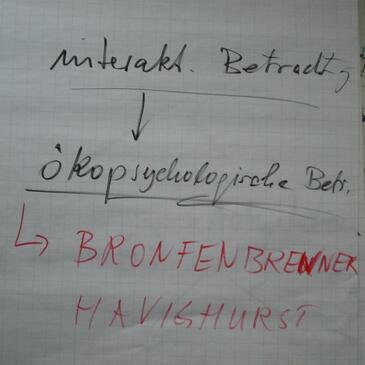 interakt. Betrachtg
ökopsychologische Betr.
BRONFENBRENNER
HAVIGHURST